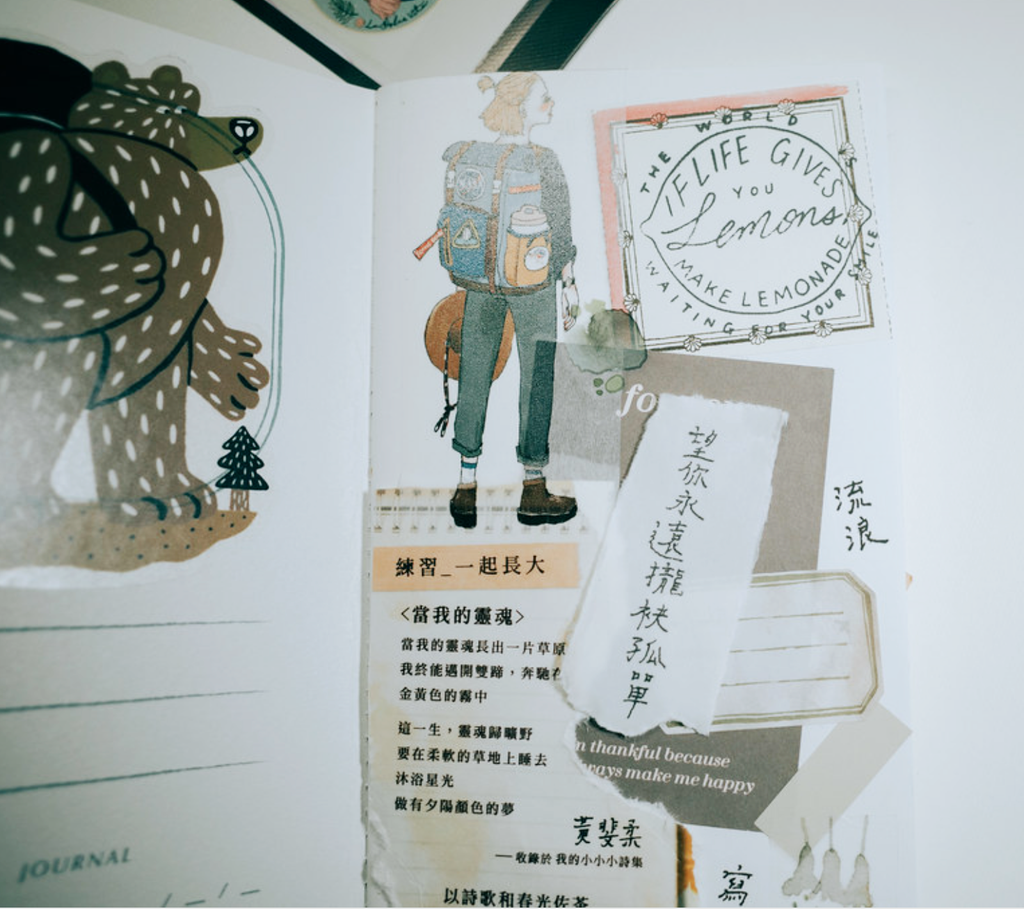 THE WORLD
IF LIFE GIVES
YOU
Lemons
MAKE LEMONADE
WAITING FOR YOUR SMILE
望你永遠攏袂孤單
流
浪
練習_一起長大
<當我的靈魂>
當我的靈魂長出一片草原
我終能遇開雙蹄，奔馳在
金黃色的霧中
這一生，靈魂歸曠野
要在柔軟的草地上睡去
沐浴星光
做有夕陽顏色的夢
黃斐柔
──收錄於 我的小小小詩集
以詩歌和春光佐茶
thankful because
make me happy
寫
JOURNAL